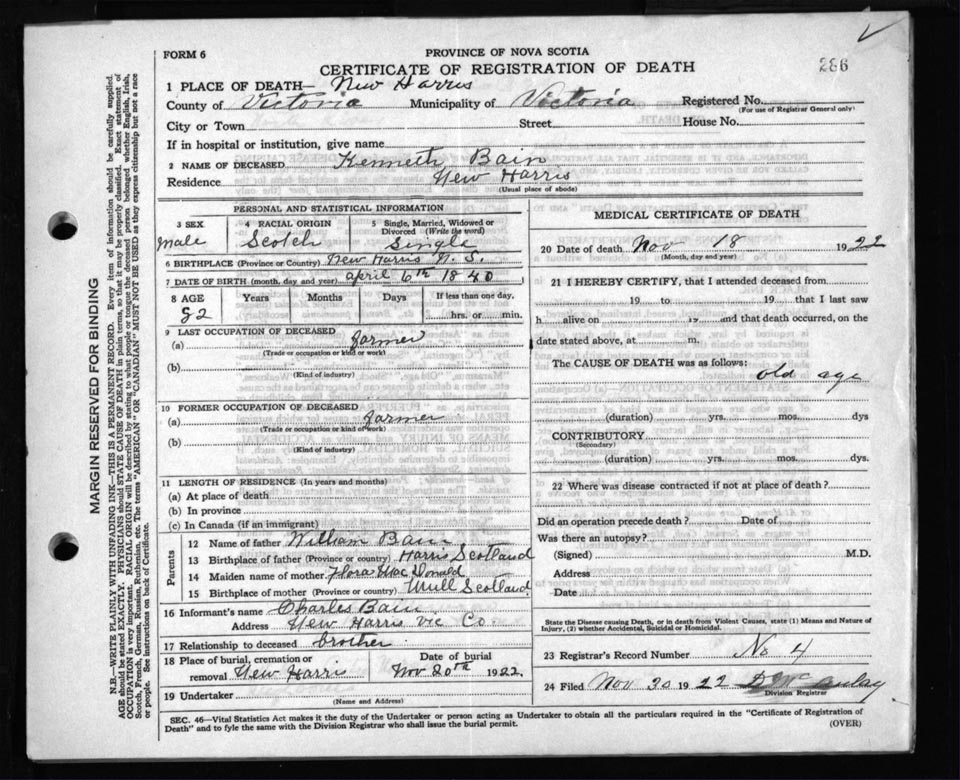 FORM 6
PROVINCE OF NOVA SCOTIA
CERTIFICATE OF REGISTRATION OF DEATH
286
1 PLACE OF DEATH— New Harris
County of Victoria Municipality of Victoria Registered No.
(For use of Registrar General only)
City or Town Street House No.
If in hospital or institution, give name
2 NAME OF DECEASED Kenneth Bain
Residence New Harris
(Usual place of abode)
PERSONAL AND STATISTICAL INFORMATION
3 SEX 4 RACIAL ORIGIN 5 Single, Married, Widowed or Divorced (Write the word)
Male Scotch Single
6 BIRTHPLACE (Province or Country) New Harris N. S.
7 DATE OF BIRTH (month, day and year) april 6th 1840
8 AGE Years Months Days If less than one day,
82 hrs. or min.
9 LAST OCCUPATION OF DECEASED
(a) farmer
(Trade or occupation or kind or work)
(b)
(Kind of industry)
10 FORMER OCCUPATION OF DECEASED
(a) farmer
(Trade or occupation or kind or work)
(b)
(Kind of industry)
11 LENGTH OF RESIDENCE (In years and months)
(a) At place of death
(b) In province
(c) In Canada (if an immigrant)
Parents
12 Name of father William Bain
13 Birthplace of father (Province or country) Harris Scotland
14 Maiden name of mother Flora Mac Donald
15 Birthplace of mother (Province or country) Mull Scotland
16 Informant's name Charles Bain
Address New Harris Vic Co.
17 Relationship to deceased brother
18 Place of burial, cremation or removal New Harris Date of burial Nov 20th 1922.
19 Undertaker
(Name and Address)
MEDICAL CERTIFICATE OF DEATH
20 Date of death Nov 18 1922
(Month, day and year)
21 I HEREBY CERTIFY, that I attended deceased from
19 to 19 that I last saw
h alive on 19 and that death occurred, on the
date stated above, at m.
The CAUSE OF DEATH was as follows:
old age
(duration) yrs. mos. dys
CONTRIBUTORY
(Secondary)
(duration) yrs. mos. dys.
22 Where was disease contracted if not at place of death?
Did an operation precede death? Date of
Was there an autopsy?
(Signed) M.D.
Address
Date
State the Disease causing Death, or in death from Violent Causes, state (1) Means and Nature of Injury, (2) whether Accidental, Suicidal or Homicidal.
23 Registrar's Record Number No 4
24 Filed Nov 30 1922 D McAulay
Division Registrar
SEC. 46—Vital Statistics Act makes it the duty of the Undertaker or person acting as Undertaker to obtain all the particulars required in the "Certificate of Registration of
Death" and to fyle the same with the Division Registrar who shall issue the burial permit. (OVER)
MARGIN RESERVED FOR BINDING
N.B.—WRITE PLAINLY WITH UNFADING INK—THIS IS A PERMANENT RECORD. Every item of information should be carefully supplied.
AGE should be stated EXACTLY. PHYSICIANS should STATE CAUSE OF DEATH in plain terms, so that it may be properly classified. Exact statement of
OCCUPATION is very important. RACIAL ORIGIN will be described by stating to what people or tongue the deceased person belonged whether English, Irish,
Scotch, French, German, Russian, Ruthenian, etc. The terms "AMERICAN" OR "CANADIAN" MUST NOT BE USED as they express citizenship but not a race
or people. See instructions on back of Certificate.